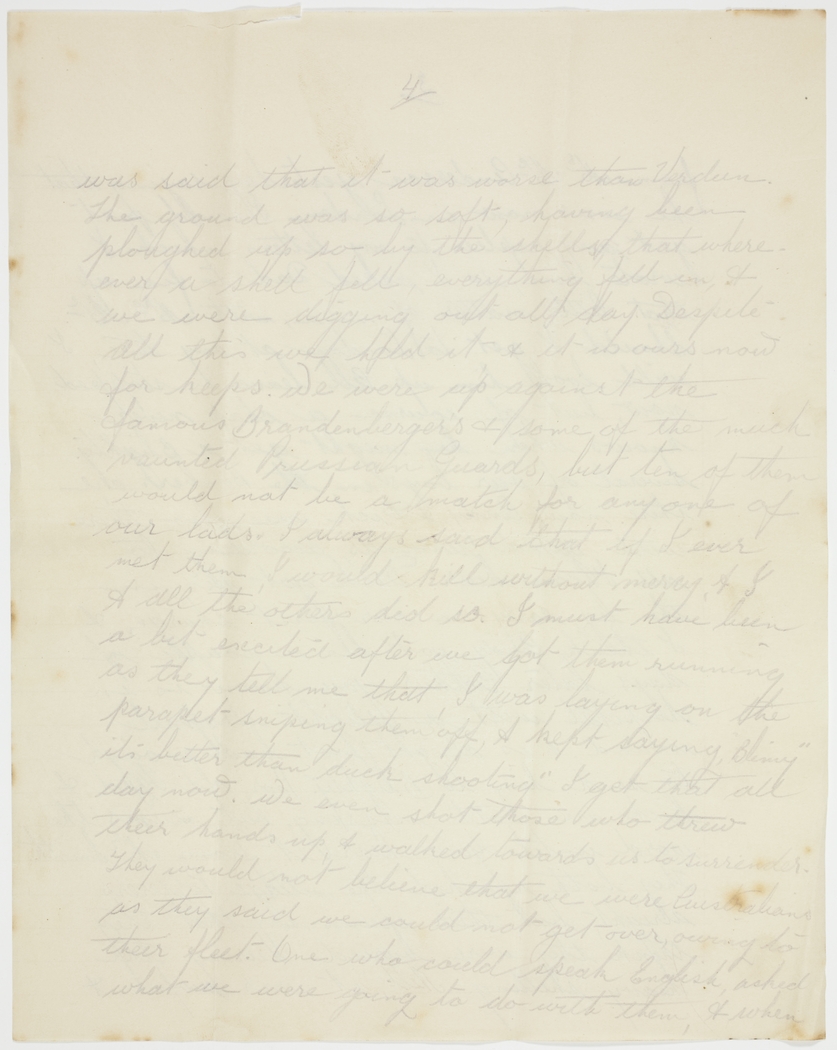 4
was said that it was worse than Verdun.
The ground was so soft, having been
ploughed up so by the shells, that where-
ever a shell fell, everything fell in, &
we were digging out all day. Despite
all this we held it & it is ours now
for keeps. We were up against the
famous Brandenbergers & some of the much
vaunted Prussian Guards, but ten of them
would not be a match for any one of
our lads. I always said that if I ever
met them, I would kill without mercy, & I
& all the others did so. I must have been
a bit excited after we got them running
as they tell me that, I was laying on the
parapet sniping them off, & kept saying, "Blimy"
its better than duck shooting" I get that all
day now. We even shot those who threw
their hands up, & walked towards us to surrender.
They would not believe that we were Australians
as they said we could not get over, owing to
their fleet. One who could speak English, asked
what we were going to do with them, & when